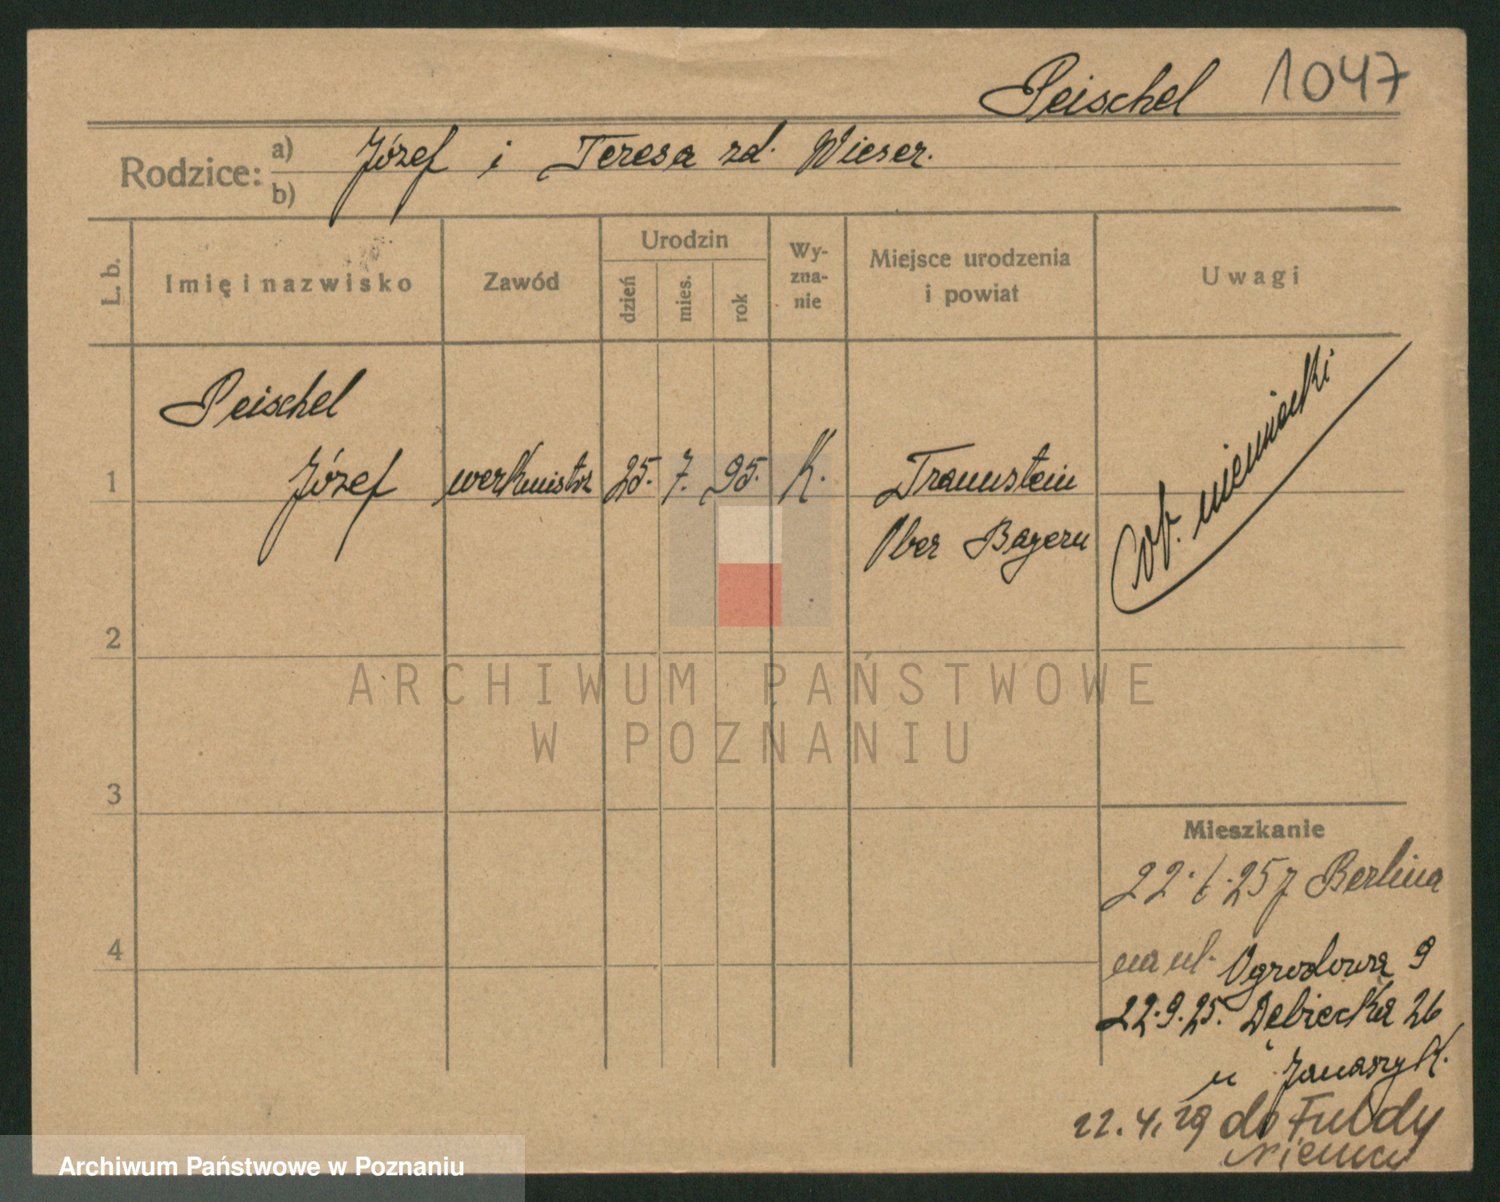 Peischel 1047
Rodzice: a) Józef i Teresa zd. Wieser.
b)
L. b.
Imię i nazwisko
Zawód
Urodzin
dzień
mies.
rok
Wy-
zna-
nie
Miejsce urodzenia
i powiat
Uwagi
Peischel
1 Józef werkmistrz 25. 7. 95. K. Traunstein
Ober Bayern
ob. niemiecki
2
3
4
Mieszkanie
22. 25 z Berlina
na ul. Ogrodową 9
22.9.25. Dębiecka 26
u Janaszyk.
22.4.29 do Fuldy
Niemcy
ARCHIWUM PAŃSTWOWE
W POZNANIU
Archiwum Państwowe w Poznaniu